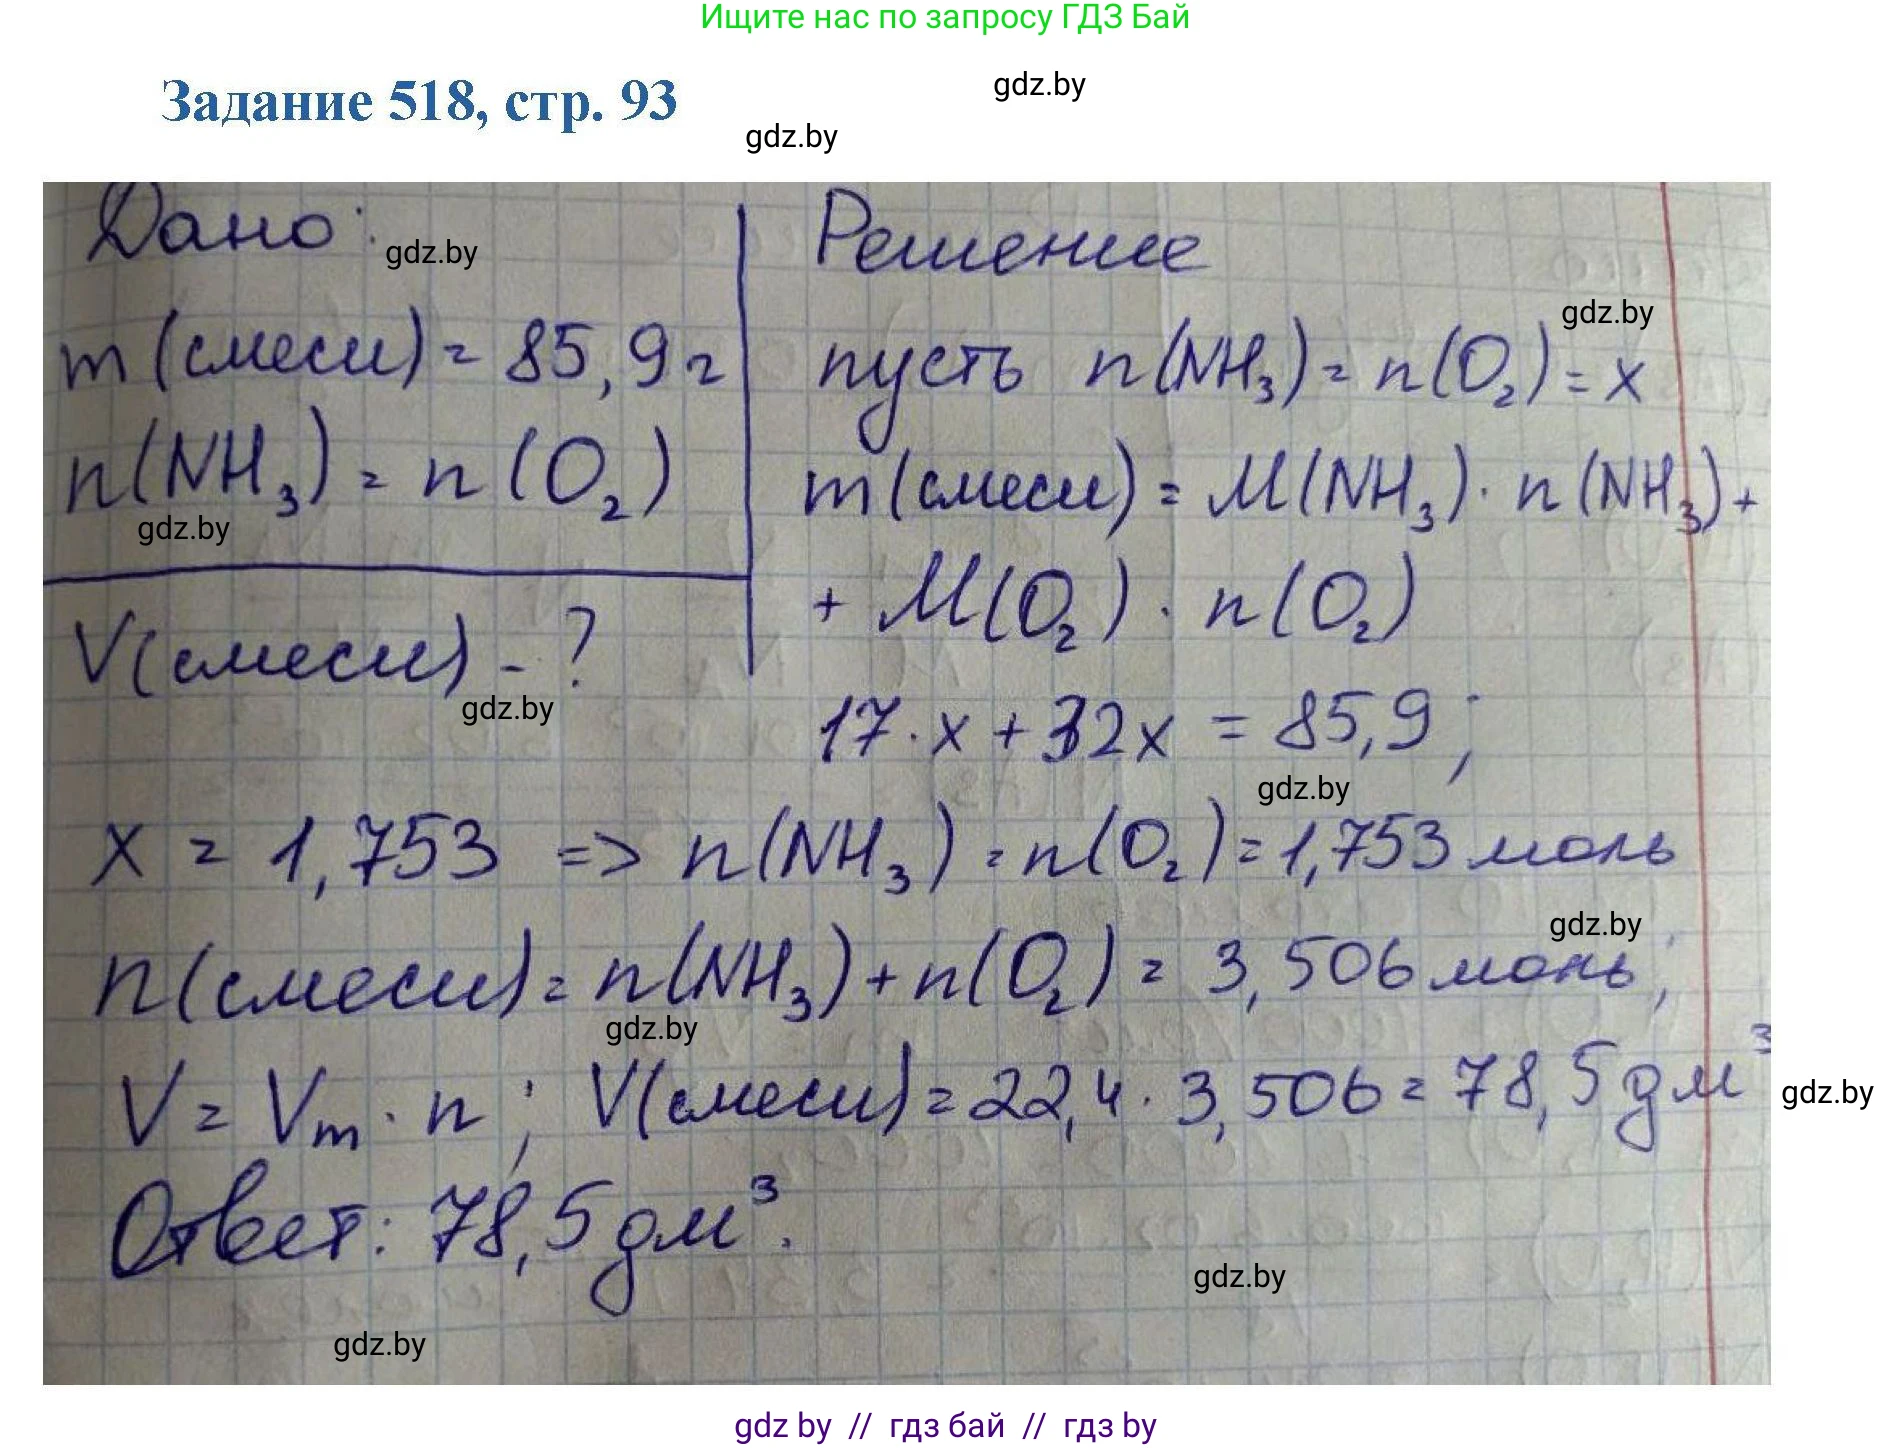 Ищите нас по запросу ГДЗ Бай
Задание 518, стр. 93
gdz.by
gdz.by
Дано:
gdz.by
m(смеси) = 85,9 г
n(NH₃) = n(O₂)
gdz.by
V(смеси) - ?
gdz.by
Решение
gdz.by
пусть n(NH₃) = n(O₂) = x
m(смеси) = M(NH₃) · n(NH₃) +
+ M(O₂) · n(O₂)
17 · x + 32x = 85,9;
gdz.by
x = 1,753 => n(NH₃) = n(O₂) = 1,753 моль
gdz.by
n(смеси) = n(NH₃) + n(O₂) = 3,506 моль;
gdz.by
V = Vm · n; V(смеси) = 22,4 · 3,506 = 78,5 дм³
gdz.by
Ответ: 78,5 дм³.
gdz.by
gdz.by
gdz by // гдз бай // гдз by